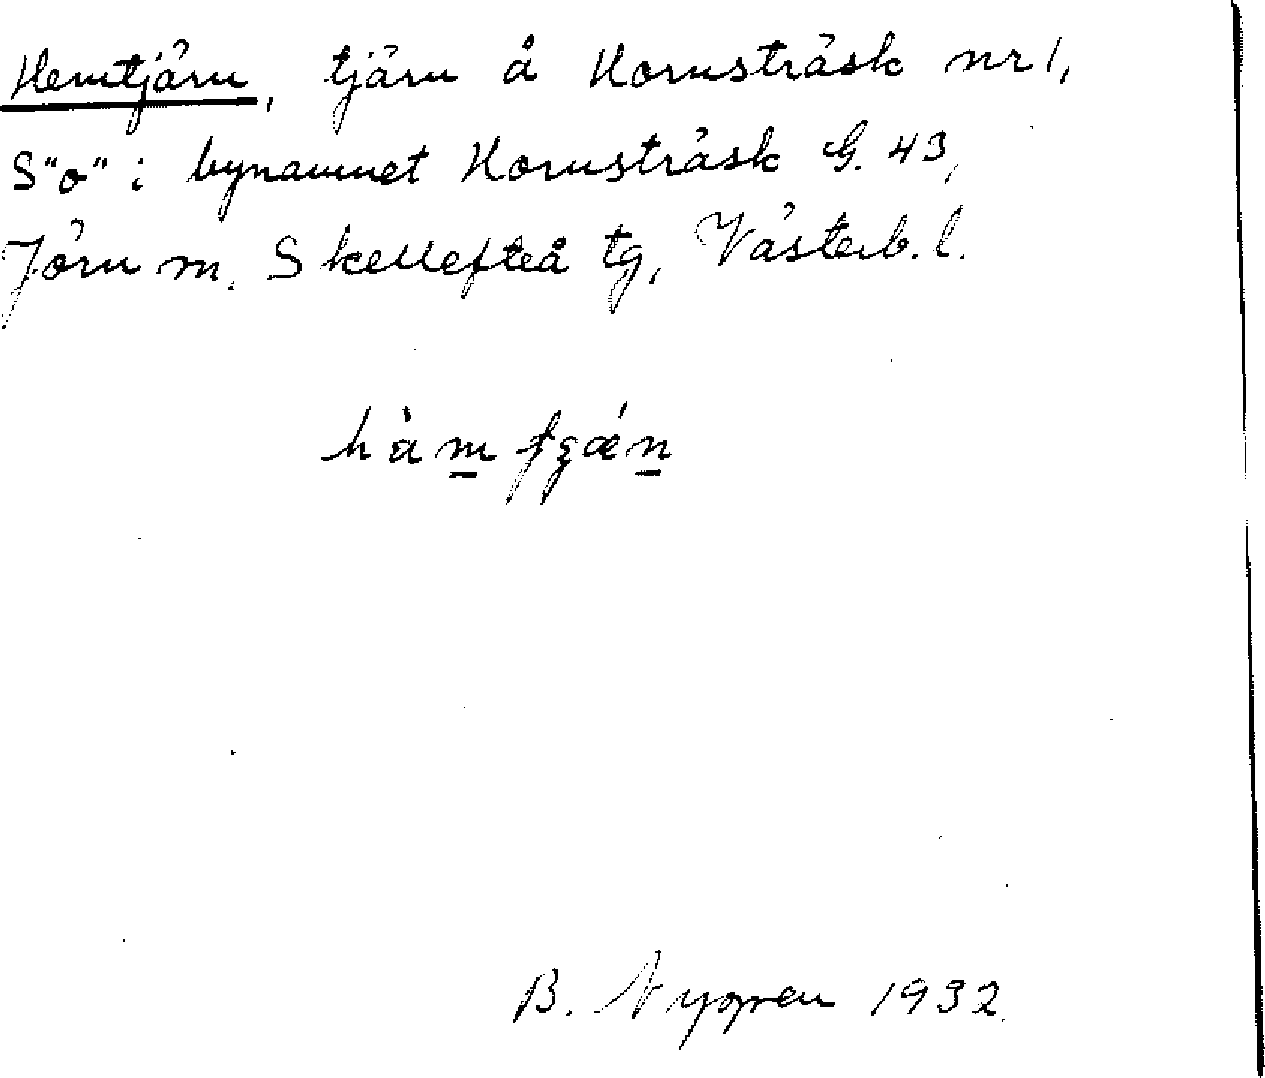 Hemtjärn, tjärn å Hornsträsk nr 1,
S "o" i bynamnet Hornsträsk G. 43,
Jörn sn. Skellefteå tg, Västerb. l.
B. Nygren 1932